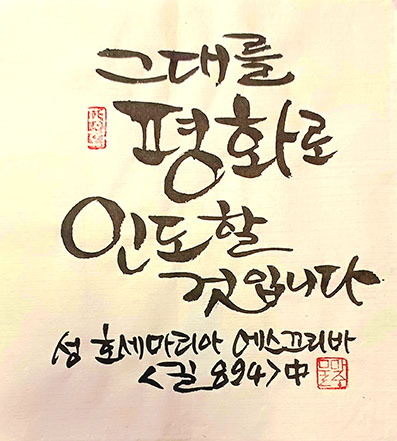 그대를
평화로
인도할
것입니다
성 호세마리아 에스끄리바
<길 894> 中